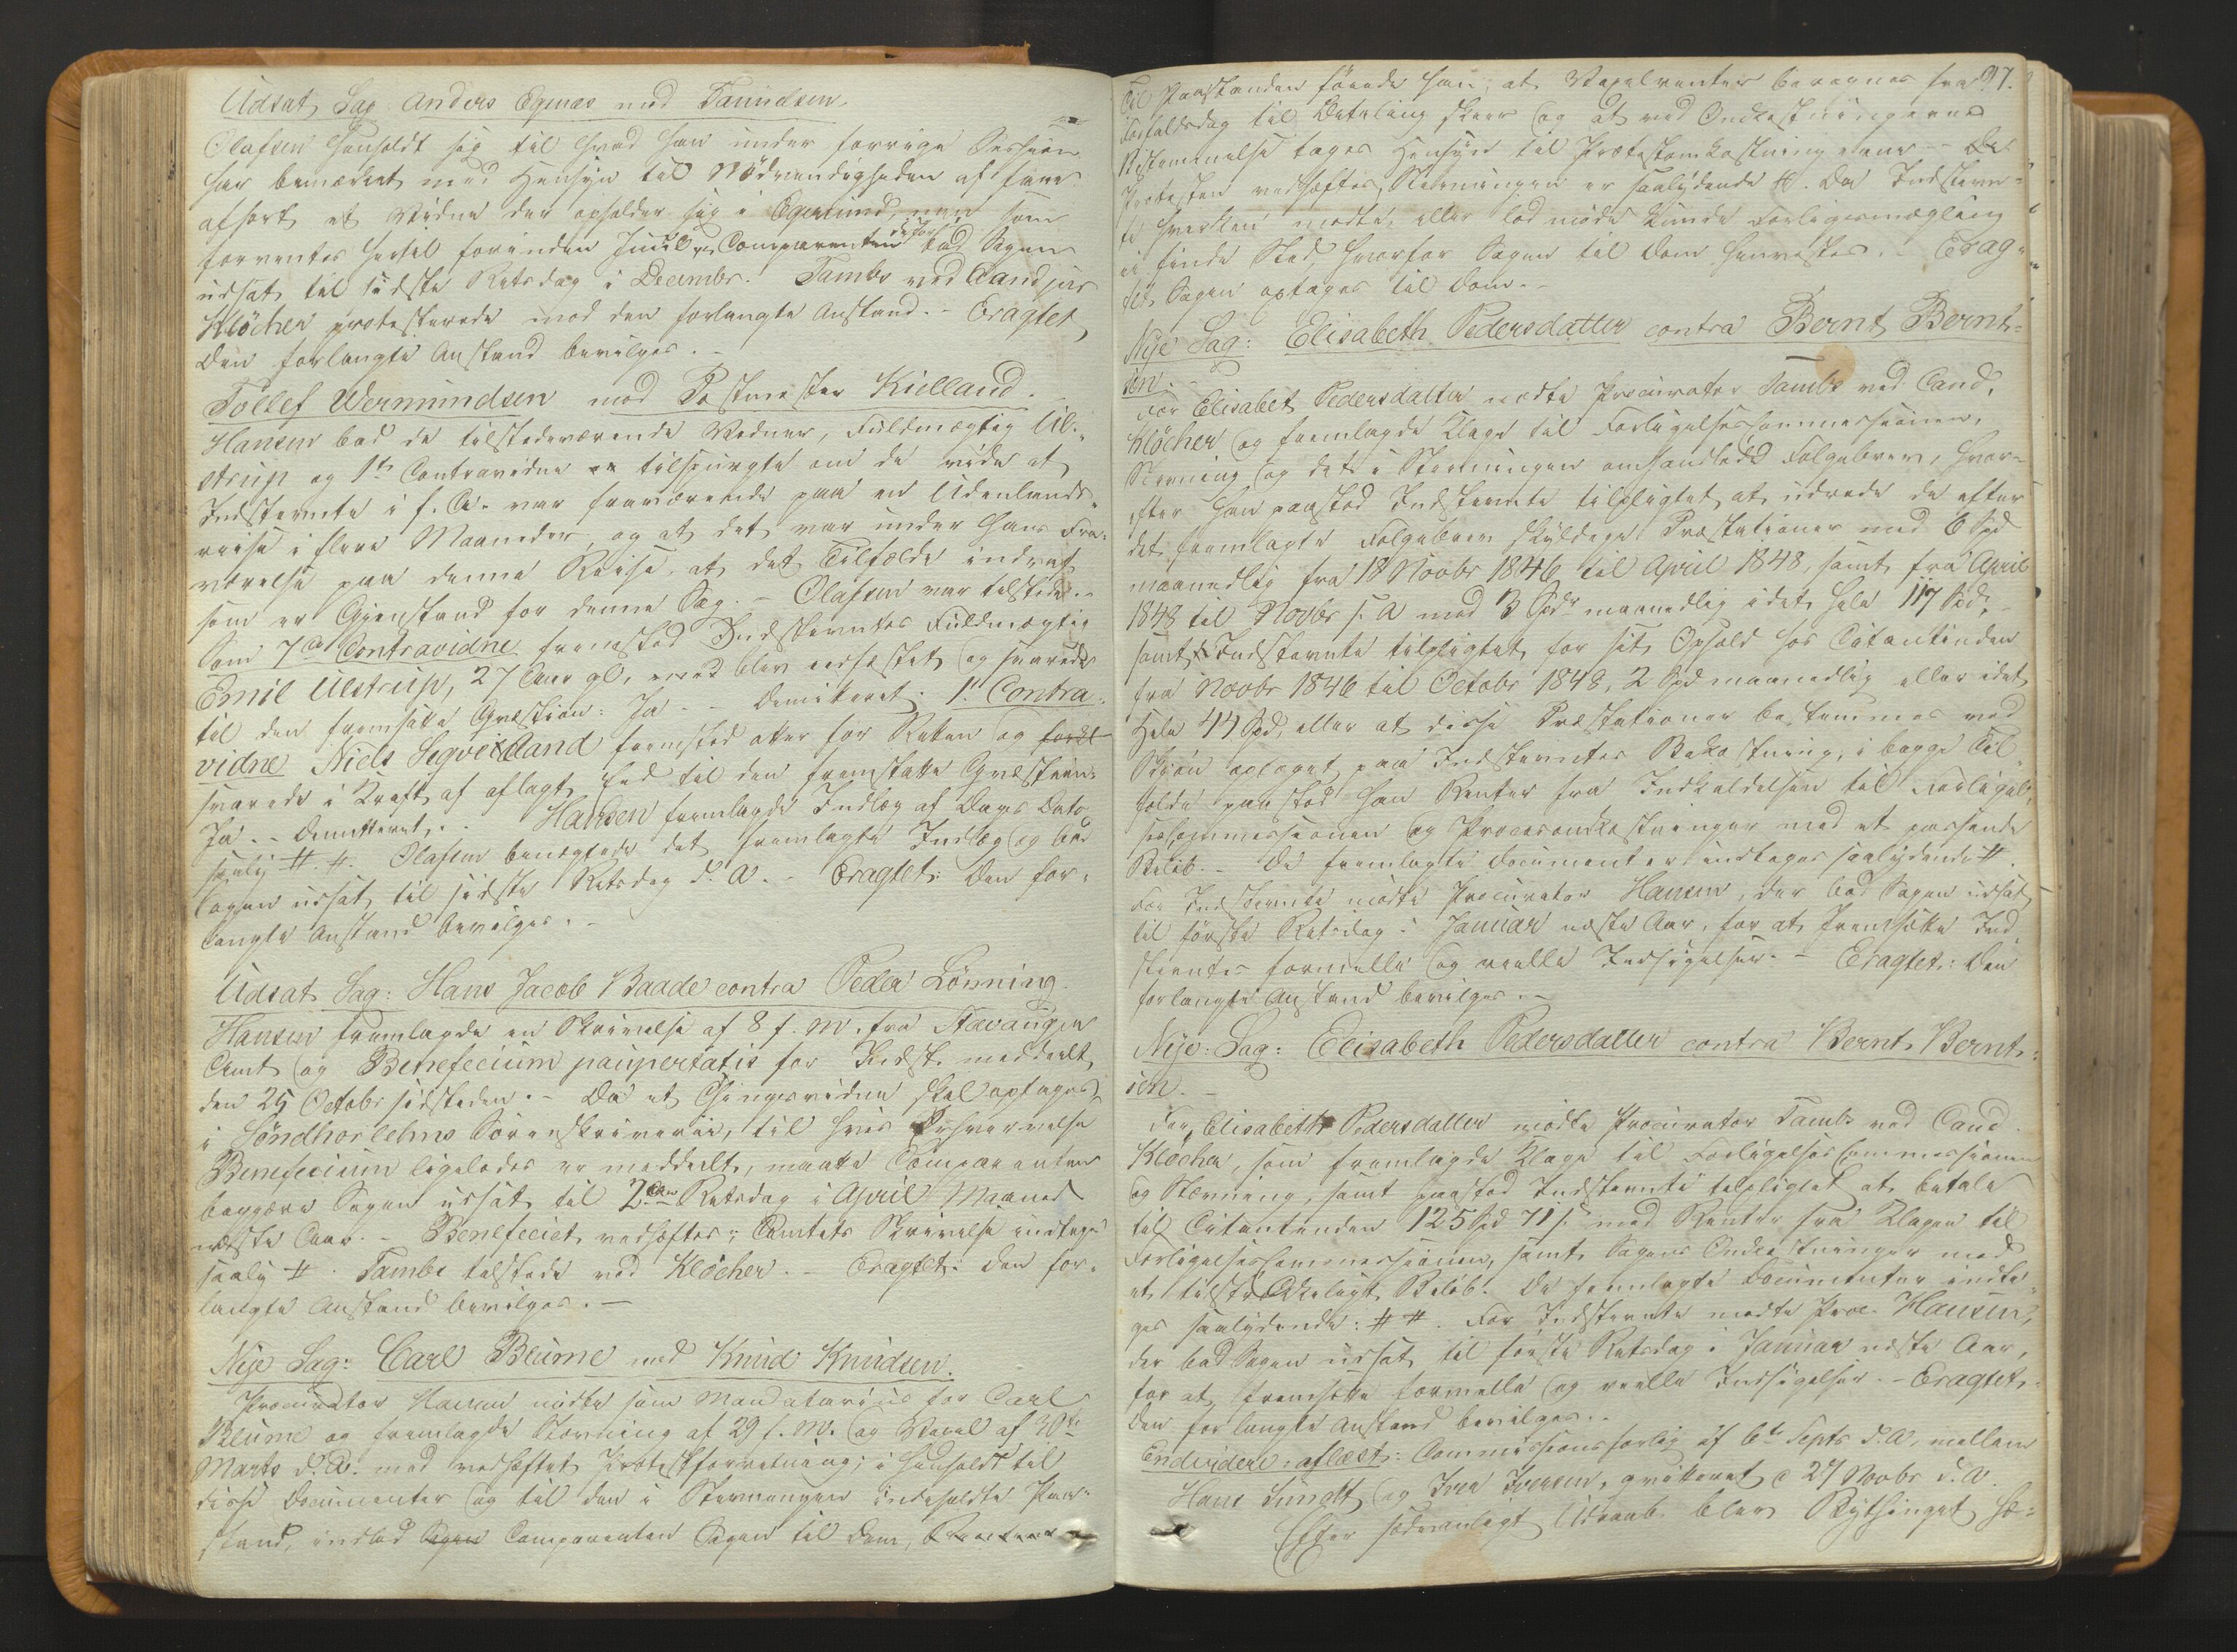 Udsat Sag Anders Egenæs mod Tanndsen.
Olafsen henholdt sig til hvad han under forrige Session
har bemærket med Hensyn til Nødvendigheden af faae
afhørt et Vidne der opholder sig i Egersund, men som
forventes hertil forinden Juul, Comparenten derfor bad Sagen
udsat til sidste Retsdag i Decembr. Tambs ved Cand jur
Klöcher protesterede mod den forlangte Anstand. - Eragtet
Den forlangte Anstand bevilges. -
Tollef Wermundsen mod Postmester Kielland.
Hansen bad de tilstedeværende Vidner, Fuldmægtig Ul-
strup og 1ste Contravidne tilspurgte om de vide at
Indstevnte i f. A. var fraværende paa en Udenlands-
reise i flere Maaneder, og at det var under hans Fra-
værelse paa denne Reise, at det Tilfælde indtraf
som er Gjenstand for denne Sag. - Olafsen var tilstede. -
Som 7de Contravidne fremstod Indstevntes Fuldmægtig
Emil Ulstrup, 27 Aar gl, blev edfæstet og svarede
til den fremsatte Qvæstion: Ja. - Demitteret. 1ste Contra-
vidne Niels Seqveland fremstod atter for Retten og
svarede i Kraft af aflagt Eed til den fremsatte Qvæstion:
Ja. - Demitteret. Hansen fremlagde Indlæg af Dags Dato
saaly # #. Olafsen benægtede det fremlagte Indlæg og bad
Sagen udsat til sidste Retsdag d. A. - Eragtet: Den for-
langte Anstand bevilges. -
Udsat Sag: Hans Jacob Baade contra Peder Lönning.
Hansen fremlagde en Skrivelse af 8 f. M. fra Stavanger
Amt og Benefecium paupertatis for Indst. meddeelt
den 25 Octobr sidstleden. - Da et Thingsvidne skal optages
i Söndhorlehns Sorenskriverie, til hvis Erhvervelse
Benefecium ligeledes er meddeelt, maatte Comparenten
begjære Sagen udsat til 2den Retsdag i April Maaned
næste Aar. - Beneficiet vedhæftes; Amtets Skrivelse indtages
saaly #. Tambs tilstede ved Klöcher. - Eragtet: Den for-
langte Anstand bevilges. -
Nye Sag: Carl Blume mod Knud Knudsen.
Procurator Hansen mødte som Mandatarius for Carl
Blume og fremlagde Stævning af 29 f. M. og Vexel af 30te
Marts d. A. med vedhæftet Protestforretning; i Henhold til
disse Documenter og til den i Stevningen indeholdte Paa-
stand, indlod Comparenten Sagen til Dom,
Til Paastanden føiede han, at Vexelrenter beregnes fra 97.
Forfaldsdag til Betaling skeer og at ved Omkostningernes
Bestemmelse tages Hensyn til Protestomkostningerne -
Protesten vedhæftes, Stevningen er saalydende #. Da Indstevn-
te hverken mødte, eller lod møde kunde Forligsmægling
ei finde Sted, hvorfor Sagen til Dom henvistes. - Erag-
tet, Sagen optages til Dom. -
Nye Sag: Elisabeth Pedersdatter contra Bernt Bernt-
sen. -
For Elisabet Pedersdatter mødte Procurator Tambs ved Cand.
Klöcher og fremlagde Klage til Forligelsescommissionen,
Stevning og det i Stevningen omhandlede Følgebrev, hvor-
efter han paastod Indstevnte tilpligtet at udrede de efter
det fremlagte Følgebrev skyldige Præstationer med 6 Spd
maanedlig fra 18 Novbr 1846 til April 1848, samt fra April
1848 til Novbr s. A med 3 Spdr maanedlig i det Hele 117 Spd, -
samt Indstevnte tilpligtet for sit Ophold hos Citantinden
fra Novbr 1846 til Octobr 1848, 2 Spd maanedlig eller i det
Hele 44 Spd, eller at disse Præstationer bestemmes ved
Skjøn optaget paa Indstevntes Bekostning, i begge Til-
fælde paastod han Renter fra Indkaldelsen til Forligel-
sescommissionen og Procesomkostninger med et passende
Beløb. - De fremlagte Documenter indtages saalydende #.
For Indstevnte mødte Procurator Hansen, der bad Sagen udsat
til første Retsdag i Januar næste Aar, for at fremsætte Ind-
stevntes formelle og reelle Indsigelser. - Eragtet: Den
forlangte Anstand bevilges. -
Nye Sag: Elisabeth Pedersdatter contra Bernt Bernt-
sen. -
For Elisabeth Pedersdatter mødte Procurator Tambs ved Cand.
Klöcher, som fremlagde Klage til Forligelsescommissionen
og Stevning, samt paastod Indstevnte tilpligtet at betale
til Citantinden 125 Spd 71 s med Renter fra Klagen til
Forligelsescommissionen, samt Sagens Omkostninger med
et tilstrækkeligt Beløb. De fremlagte Documenter indta-
ges saalydende: # #. For Indstevnte mødte Proc. Hansen,
der bad Sagen udsat til første Retsdag i Januar næste Aar,
for at fremsætte formelle og reelle Indsigelser. - Eragtet,
den forlangte Anstand bevilges. -
Endvidere aflæst: Commissionsforlig af 6te Septr d. A. mellem
Hans Sundt og Iver Iversen, qvitteret d 27 Novbr d. A.
Efter sædvanligt Udraab blev Bythinget hæ-